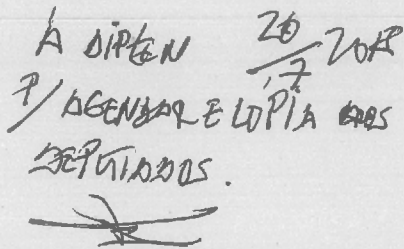 À DIPLEN 20/7/2015
P/ AGENDAR E COPIA AOS
DEPUTADOS.